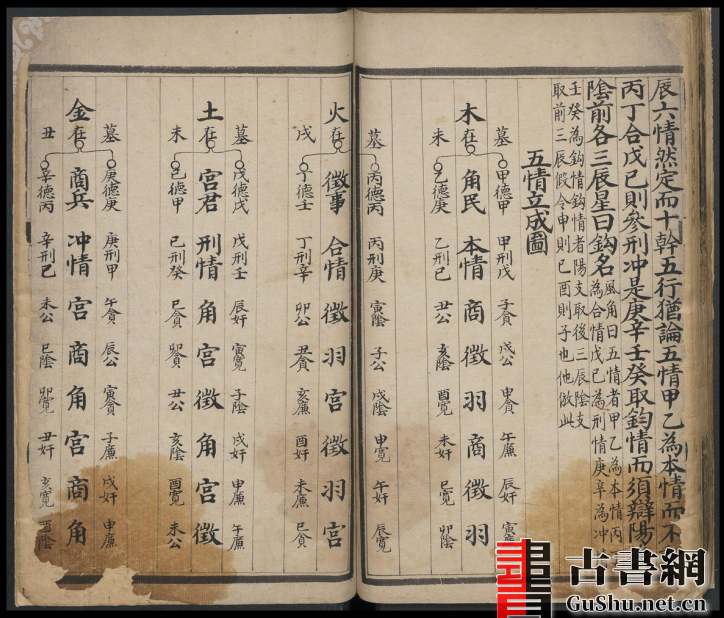 辰六情然定而十幹五行猶論五情甲乙為本情而不
丙丁合戊巳則參刑冲是庚辛壬癸取鈎情而須辯陽
陰前各三辰星曰鈎名
風角曰五情者甲乙為本情丙
為合情戊巳為刑情庚辛為冲
壬癸為鈎情鈎情者陽支取後三辰陰支
取前三辰假令申則巳酉則子也他倣此
五情立成圖
墓 甲德甲 甲刑戊 子貪 戌公 申貪 午廉 辰奸 寅
木在 角民 本情 商 徵 羽 商 徵 羽
未 乙德庚 乙刑巳 丑公 亥陰 酉寬 未奸 巳寬 卯陰
墓 丙德丙 丙刑庚 寅陰 子公 戌陰 申寬 午奸 辰寬
火在 徵事 合情 徵 羽 宮 徵 羽 宮
戌 丁德壬 丁刑辛 卯公 丑貪 亥廉 酉奸 未廉 巳貪
墓 戊德戊 戊刑壬 辰奸 寅寬 子陰 戌奸 申廉 午廉
土在 宮君 刑情 角 宮 徵 角 宮 徵
未 巳德甲 巳刑癸 巳貪 卯貪 丑公 亥陰 酉寬 未公
墓 庚德庚 庚刑甲 午貪 辰公 寅貪 子廉 戌奸 申廉
金在 商兵 冲情 宮 商 角 宮 商 角
丑 辛德丙 辛刑巳 未公 巳陰 卯寬 丑奸 亥寬 酉陰
古書網
GuShu.net.cn